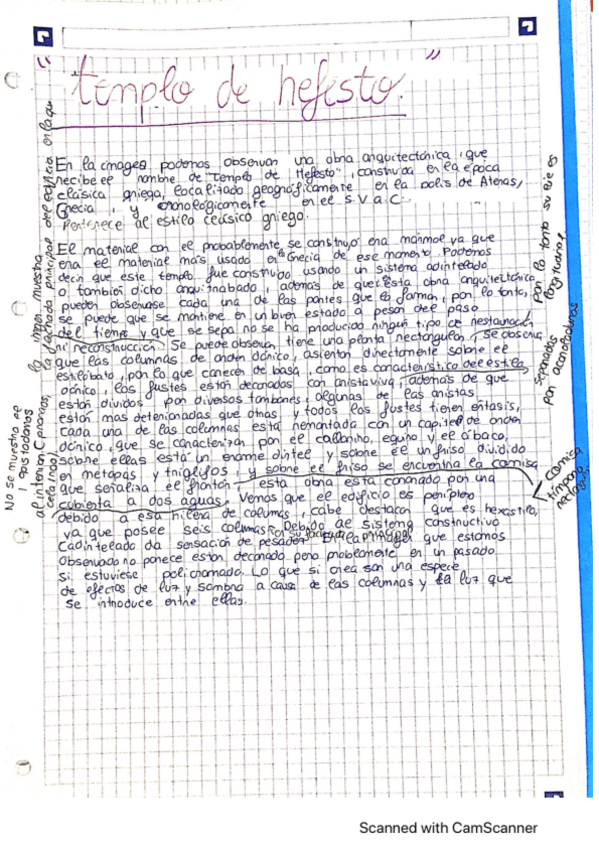 "templo de hefesto."
En la imagen podemos observar una obra arquitectónica, que
recibe el nombre de "Templo de Hefesto", construida en la época
clásica griega, localizado geográficamente en la polis de Atenas,
Grecia, y cronológicamente en el S.V a.C.
Pertenece al estilo clásico griego.
El material con el probablemente se construyó era mármol ya que
era el material más usado en la Grecia de ese momento. Podemos
decir que este templo fue construido usando un sistema adintelado
o también dicho arquitrabado, además de que esta obra arquitectónica
pueden observarse cada una de las partes que lo forman, por lo tanto,
se puede que se mantiene en un buen estado a pesar del paso
del tiempo y que se sepa no se ha producido ningún tipo de restauración
ni reconstrucción. Se puede observar, tiene una planta rectangular, se observa
que las columnas de orden dórico, asientan directamente sobre el
estilóbato, por lo que carecen de basa, como es característico del estilo
dórico, los fustes están decorados con arista viva, además de que
están dividos por diversos tambores, algunas de las aristas
están más deterionadas que otras y todos los fustes tienen éntasis,
cada una de las columnas está remontada con un capitel de orden
dórico, que se caracterizan por el collarino, equino y el ábaco,
sobre ellas está un enorme dintel y sobre el un friso dividido
en metopas y triglifos, y sobre el friso se encuentra la cornisa
que señaliza el frontón, esta obra está coronado por una
cubierta a dos aguas. Vemos que el edificio es períptero
debido a esa hilera de columnas, cabe destacar que es hexástilo,
ya que posee seis columnas en su fachada principal. Debido al sistema constructivo
(adintelado da sensación de pesadez). En la imagen que estamos
observado no parece estar decorado pero problemente en un pasado
si estuviese policromado. Lo que si crea son una especie
de efectos de luz y sombra a causa de las columnas y la luz que
se introduce entre ellas.
la imagen muestra
la fachada principal del edificio en la que
No se muestra el
opistodomos
al interior (pronaos,
cela (naos)
por lo tanto su eje es
longitudinal
separaras
por acanaladuras
cornisa
tímpano
Scanned with CamScanner